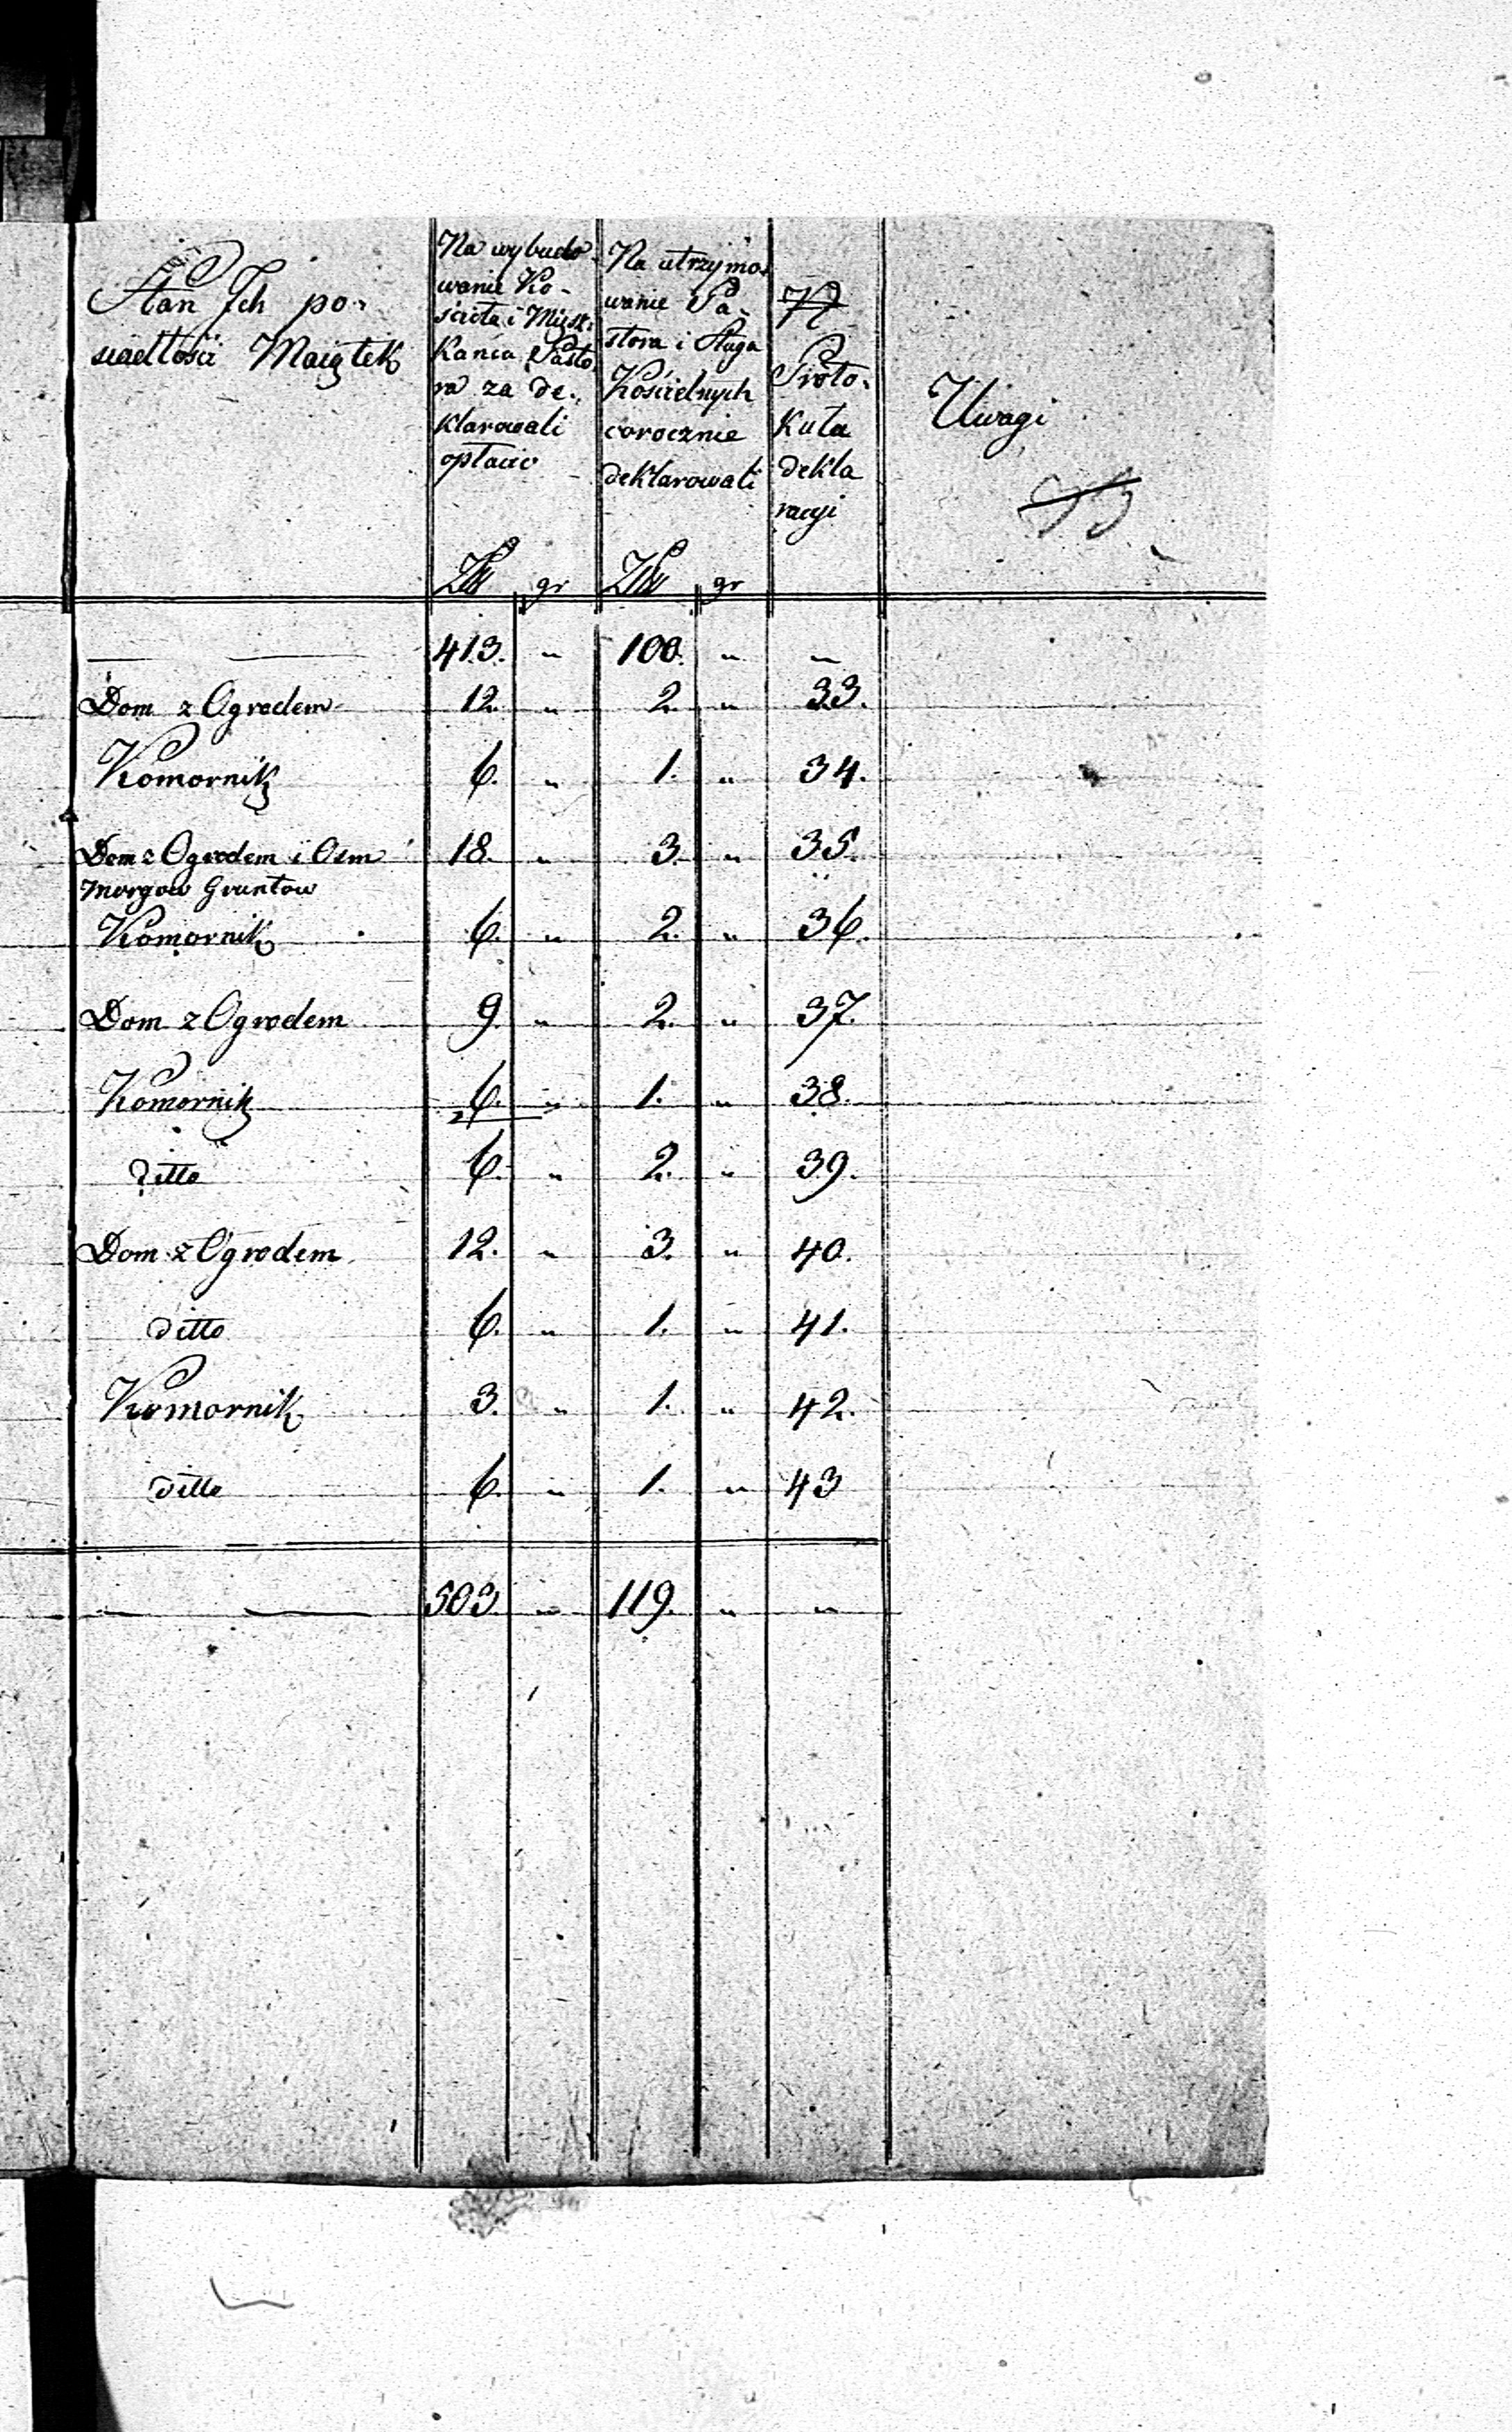 Stan Ich po-
siadłości Maiątek
Na wybudo-
wanie Ko-
ścioła i Miesz-
kania Pasto-
ra za de-
klarowali
opłacić
Na utrzymo-
wanie Pa-
stora i Sługa
Kościelnych
corocznie
deklarowali
N
Proto-
kuła
dekla
racyi
Uwagi
Złł gr Złł gr
413. " 100. " "
Dom z Ogrodem 12. " 2. " 33.
Komornik 6. " 1. " 34.
Dom z Ogrodem i Osm 18. " 3. " 35.
morgow Gruntow
Komornik 6. " 2. " 36.
Dom z Ogrodem 9. " 2. " 37.
Komornik 6. " 1. " 38.
ditto 6. " 2. " 39.
Dom z Ogrodem 12. " 3. " 40.
ditto 6. " 1. " 41.
Komornik 3. " 1. " 42.
ditto 6. " 1. " 43
503. " 119. " "